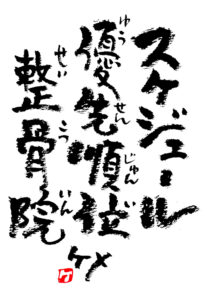 スケジュール
優先順位
ゆうせんじゅんい
整骨院
せいこついん
ケメ
ケ